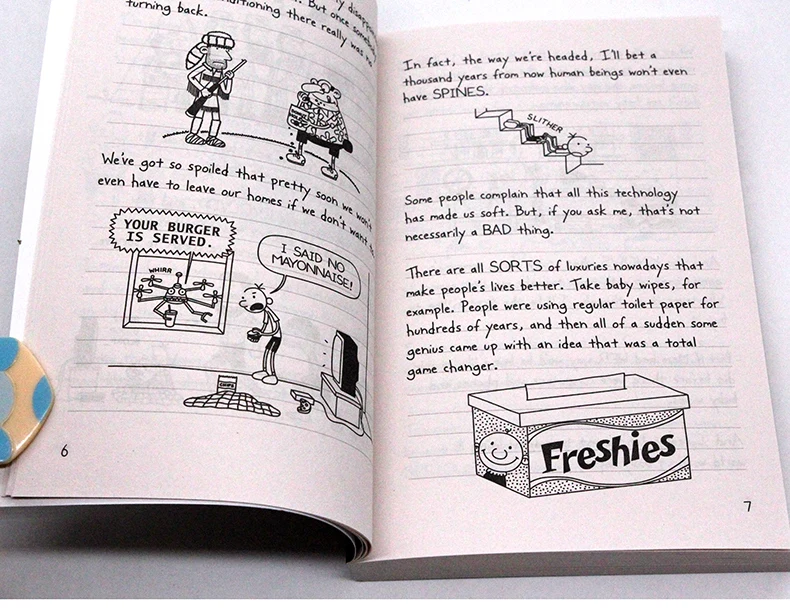 disappear
. But once somebody
ditioning there really was no
turning back.
We've got so spoiled that pretty soon we won't
even have to leave our homes if we don't want to
YOUR BURGER
IS SERVED.
WHIRR
I SAID NO
MAYONNAISE!
CHIPS
6
In fact, the way we're headed, I'll bet a
thousand years from now human beings won't even
have SPINES.
SLITHER
Some people complain that all this technology
has made us soft. But, if you ask me, that's not
necessarily a BAD thing.
There are all SORTS of luxuries nowadays that
make people's lives better. Take baby wipes, for
example. People were using regular toilet paper for
hundreds of years, and then all of a sudden some
genius came up with an idea that was a total
game changer.
Freshies
7